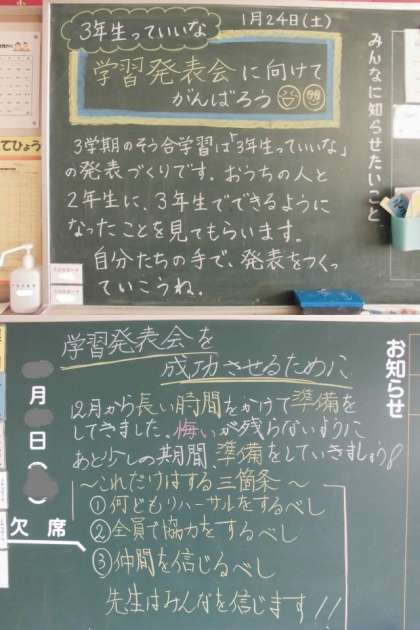 3年生っていいな
1月24日(土)
学習発表会に向けて
がんばろう
みんなに知らせたいこと
3学期のそう合学習は「3年生っていいな」
の発表づくりです。おうちの人と
2年生に、3年生でできるように
なったことを見てもらいます。
自分たちの手で、発表をつくっ
ていこうね。
てひょう
学習発表会を
成功させるために
お知らせ
月
日
(
)
欠席
12月から長い時間をかけて準備を
してきました。悔いが残らないように
あと少しの期間、準備をしていきましょう
〜これだけはする三箇条〜
①何どもリハーサルをするべし
②全員で協力をするべし
③仲間を信じるべし
先生はみんなを信じます!!